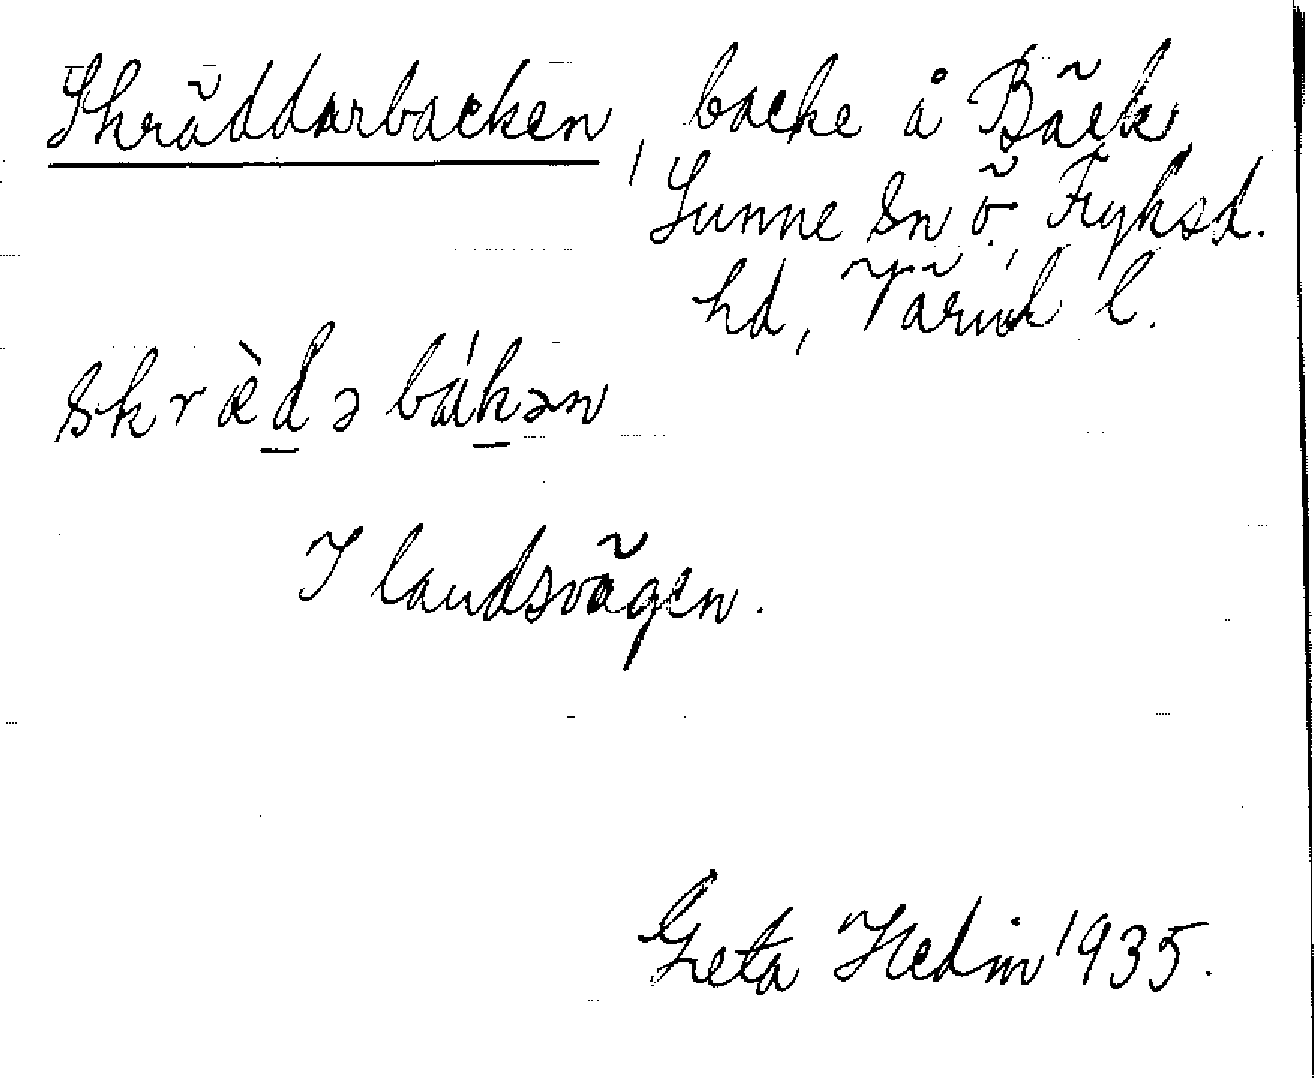 Skräddarbacken, backe å Bäck
Sunne sn ö., Fryksd.
hd, Värml l.
skræ̀d̲ə bák̲ən
I landsvägen.
Greta Hedin 1935.